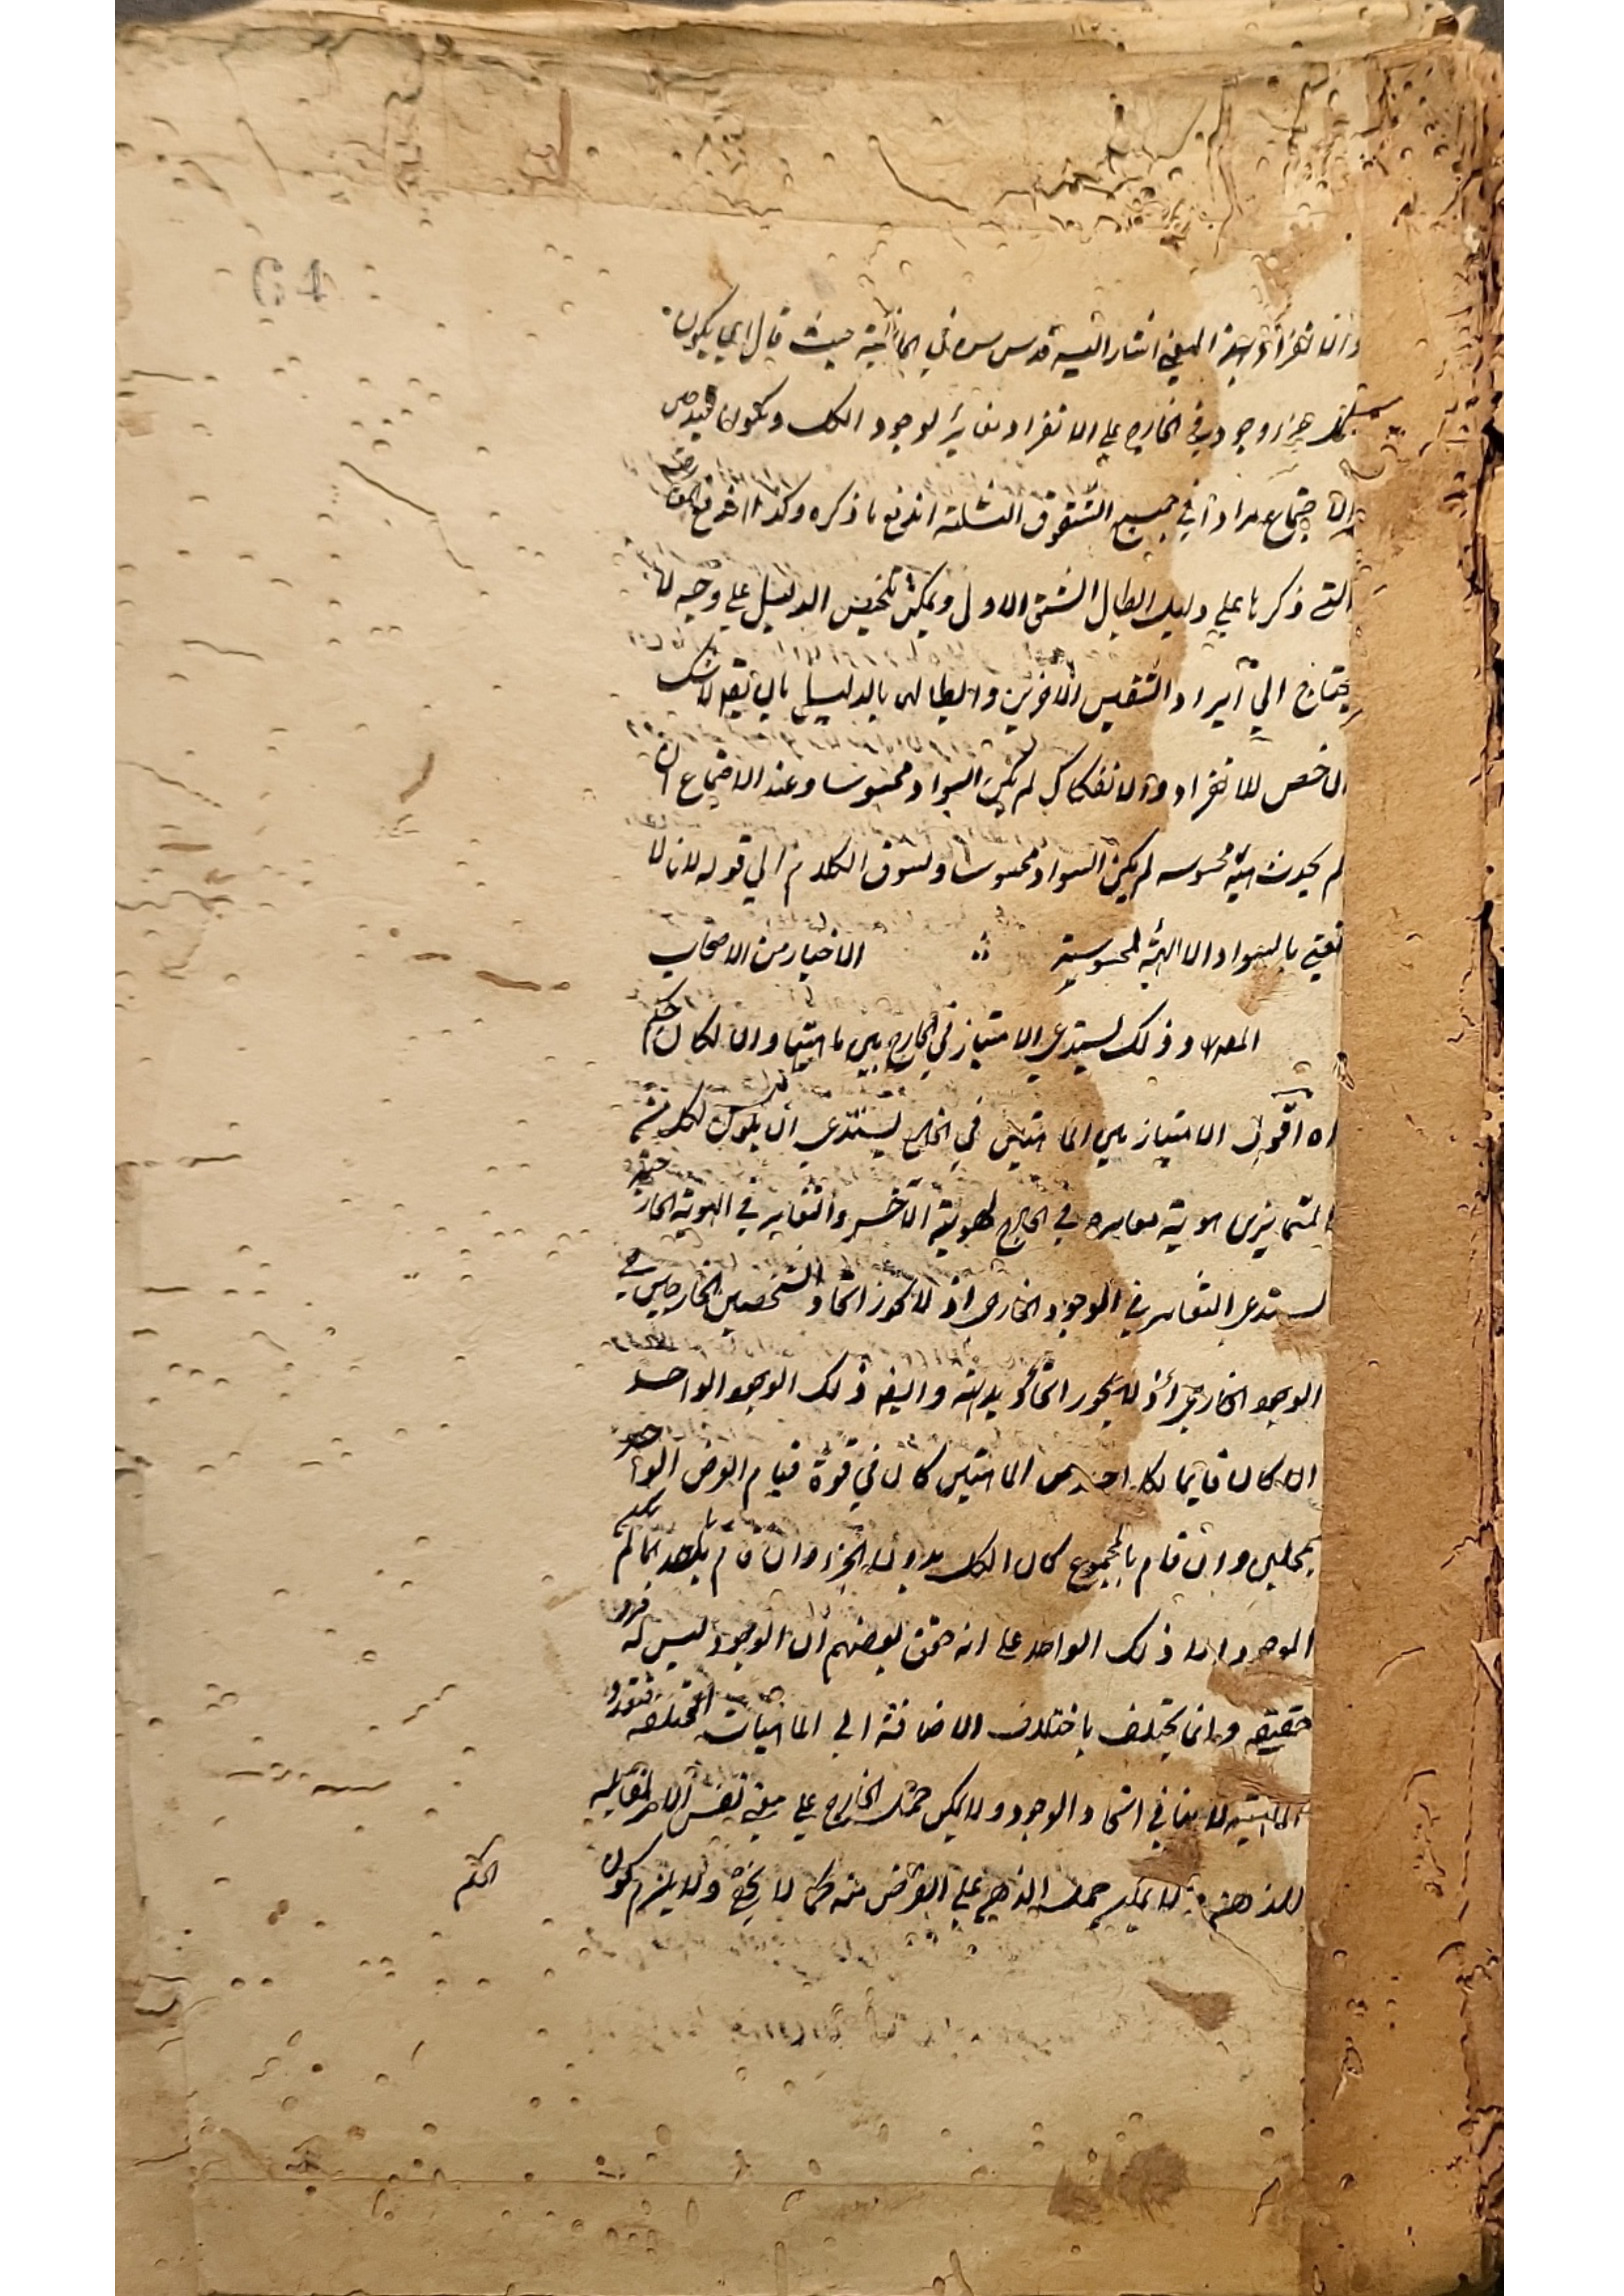 والانفراد بهذا المعنى اشار اليه قدس سره في الحاشية حيث قال اي يكون
لكل جزء وجود في الخارج على الانفراد مغاير لوجود الكل ويكون قيد
الاجتماع مرادا في جميع الشقوق الثلثة اندفع ما ذكره وكذا اندفع
التي ذكرها على دليل ابطال الشق الاول ويمكن تلخيص الدليل على وجه لا
يحتاج الى ايراد الشقين الاخرين وابطالهما بالدليل بان يقال لا شك
الاخص للانفراد والانفكاك لم يكن السواد محسوسا وعند الاجتماع ان
لم يحدث هيئة محسوسه لم يكن السواد محسوسا ويسوق الكلام الى قوله لانا لا
نعني بالسواد الا الهيئة المحسوسة الاخيار من الاصحاب
وذلك يستدعي الامتياز في الخارج بين ماهيتها والا لكان حكم
اه اقول الامتياز بين الماهيتين في الخارج يستدعي ان يكون لكل من
المتمايزين هوية مغايره في الخارج لهوية الآخر والتغاير في الهوية الخارجية
يستدعي التغاير في الوجود الخارجي اذ لا يجوز اتحاد الشخصين الخارجيين في
الوجود الخارجي اذ لا يجوز اتحاد بديهة وايضا ذلك الوجود الواحد
ان كان قايما لكل احد من الماهيتين كان في قوة قيام العرض الواحد
بمحلين وان قام بالمجموع كان الكل بدون الجزء وان قام باحدهما لم يكن
الموجود الا ذلك الواحد على انه حقق بعضهم ان الوجود ليس له فرد
حقيقة وانما يختلف باختلاف الاضافة الى الماهيات المختلفة فتعدد
الماهية لا ينافي اتحاد الوجود ولا يمكن حمل الخارج على معنى نفس الامر المقابلة
للذهني لا يمكن حمل الذهني على الفرض منه كما لا يخفى ولا يلزم كون
الحكم